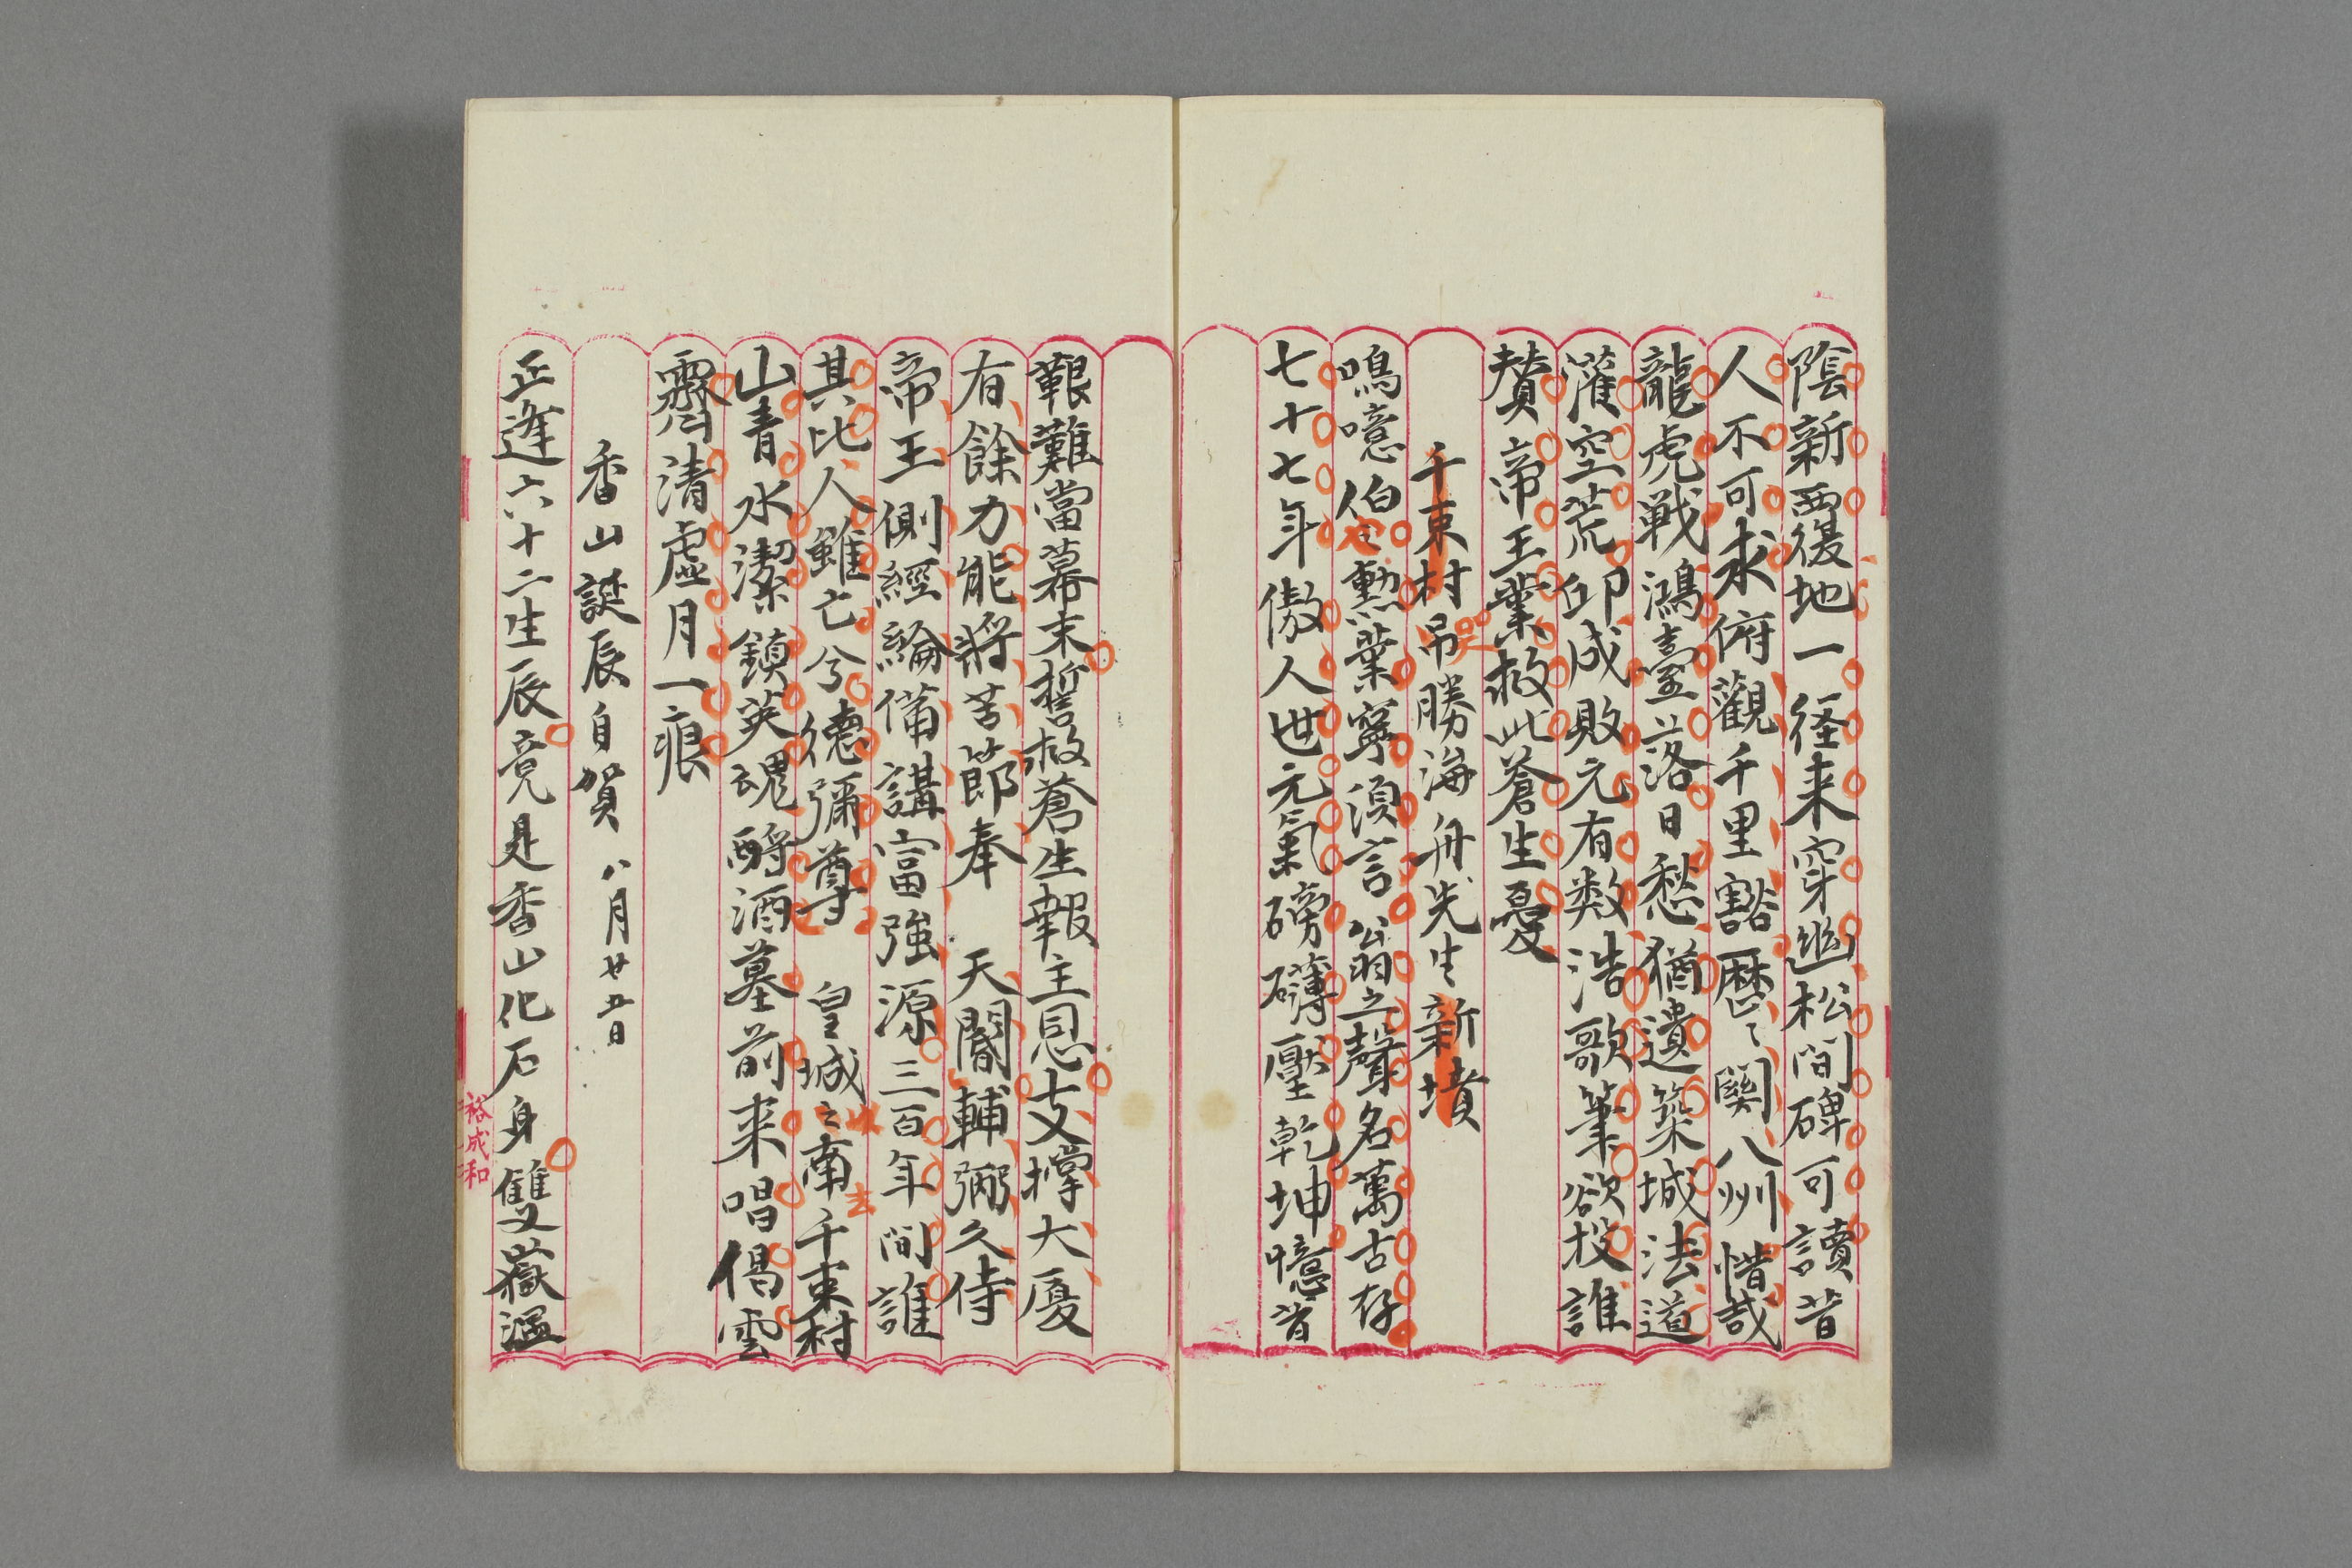 陰新覆地一径来穿幽松間碑可讀昔
人不可求俯觀千里豁歴〻関八州惜哉
龍虎戦鴻臺落日愁猶遺築城法道
灌空荒邱成敗元有数浩歌筆欲投誰
賛帝王業救此蒼生憂
千束村吊勝海舟先生新墳
嗚噫伯〻勲業寧須言翁之聲名萬古存
七十七年傲人世元氣磅礴壓乾坤憶昔
艱難當幕末誓救蒼生報主恩支撑大厦
有餘力能將苦節奉 天閽輔弼久侍
帝王側經綸備講富強源三百年間誰
其比人雖亡兮德彌尊 皇城之南千束村
山青水潔鎮英魂酹酒墓前来唱偈雲
霽清虚月一痕
香山誕辰自賀 八月廿五日
正逢六十二生辰竟是香山化石身雙嶽温
裕成和